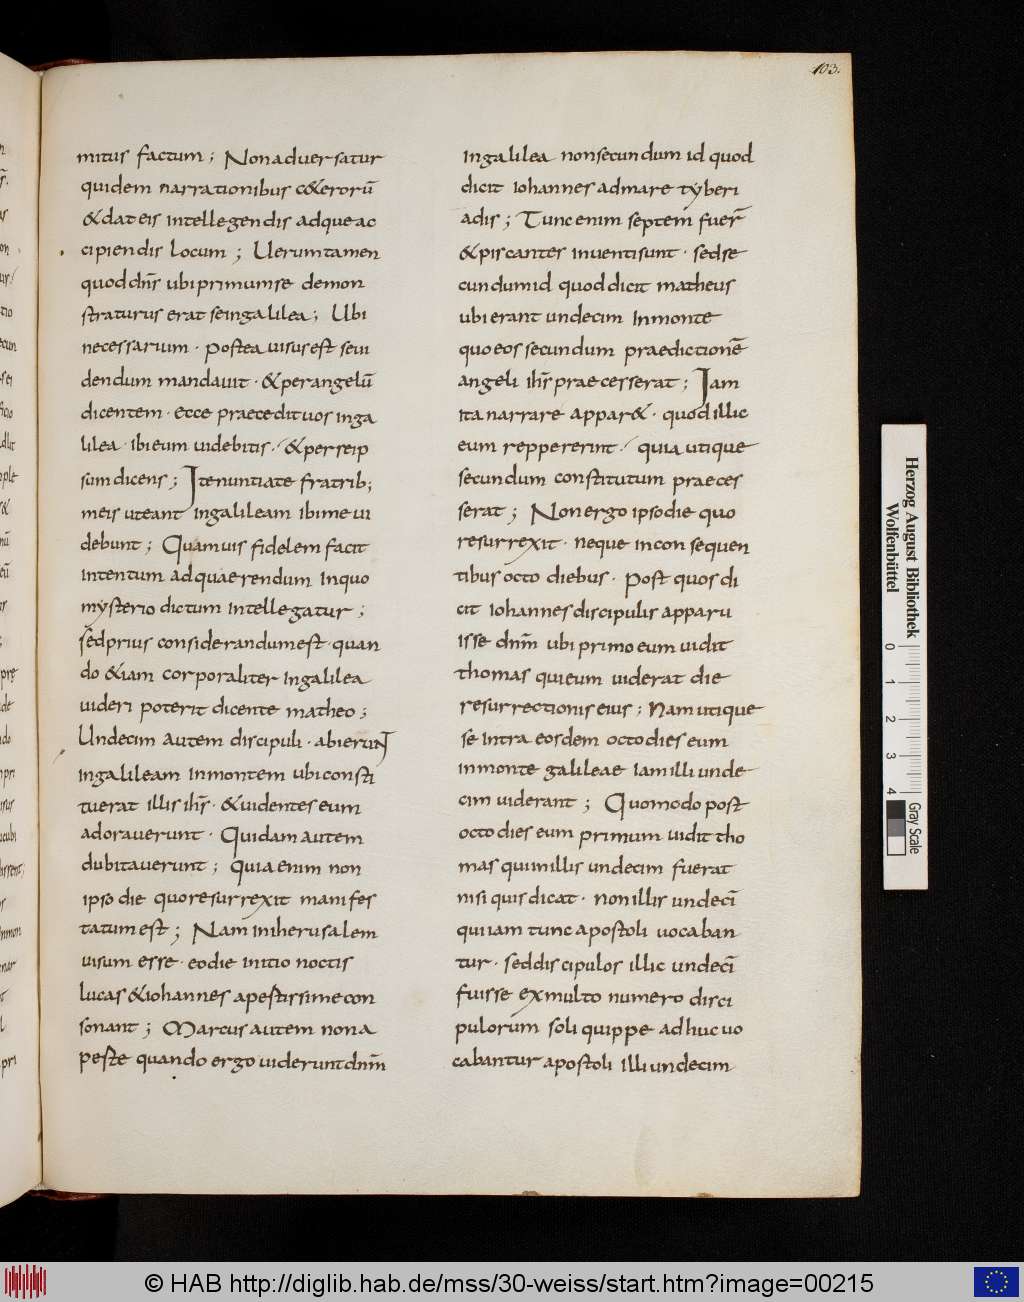 103.
mitus factum; Nonaduersatur
quidem narrationibus c&erorū
&dateis intellegendis adqueac
cipiendis locum; Uerumtamen
quoddn̄s ubiprimumse demon
straturus erat seingalilea; Ubi
necessarium · posteauisusest seui
dendum mandauit · &perangelū
dicentem · ecce praecedituos inga
lilea · ibieum uidebitis · &perseip
sum dicens; Itenuntiate fratrib;
meis uteant ingalileam ibimeui
debunt; Quamuis fidelem facit
intentum adquaerendum inquo
mysterio dictum intellegatur;
sedprius considerandumest · quan
do &iam corporaliter ingalilea
uideri poterit dicente matheo;
Undecim autem discipuli · abierunt
ingalileam inmontem ubiconsti
tuerat illis ih̄s · &uidentes eum
adorauerunt · Quidam autem
dubitauerunt; Quia enim non
ipso die quoresurrexit manifes
tatumest; Nam iniherusalem
uisum esse · eodie initio noctis
lucas &iohannes apestissime con
sonant; Marcus autem nona
peste quando ergo uideruntdnm̄
ingalilea nonsecundum id quod
dicit iohannes admare tyberi
adis; Tuncenim septem fuer̄
&piscantes inuentisunt · sedse
cundumid quoddicit matheus
ubi erant undecim inmonte
quoeos secundum praedictionē
angeli ih̄s praecesserat; Iam
ita narrare appar& · quod illic
eum reppererint · quia utique
secundum constitutum praeces
serat; Non ergo ipsodie quo
resurrexit · neque inconsequen
tibus octo diebus · post quos di
cit iohannes discipulis apparu
isse dnm̄ ubi primo eum uidit
thomas quieum uiderat die
resurrectionis eius; Nam utique
se intra eosdem octodies eum
inmonte galileae iamilli unde
cim uiderant; Quomodo post
octo dies eum primum uidit tho
mas quiinillis undecim fuerat
nisi quis dicat · nonillis undecī
quiiam tunc apostoli uocaban
tur · seddiscipulos illic undecī
fuisse exmulto numero disci
pulorum soli quippe adhuc uo
cabantur apostoli illi undecim
Herzog August Bibliothek
Wolfenbüttel
0
1
2
3
4
Gray Scale
© HAB http://diglib.hab.de/mss/30-weiss/start.htm?image=00215